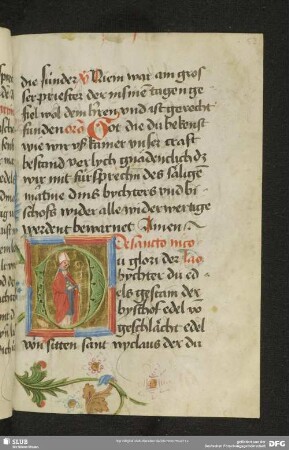 die sunder Niem war am gros
ser priester der in sine tagen ge
fiel wol dem heren vnd ist gerecht
funden Got die du bekenst
wie wir vs kainer vnser craft
bestand verlych gnädenclich dz
wir mit fürsprechn des säligen
martine dins bychters vnd bi
schofs wider alle widerwertige
werdent bewarnet Amen
De sancto nico
u glori der lao
bychter du ed
els gestain der
byschof edel vo
geschlächt edel
von sitten sant nyclaus der du
SLUB
DFG